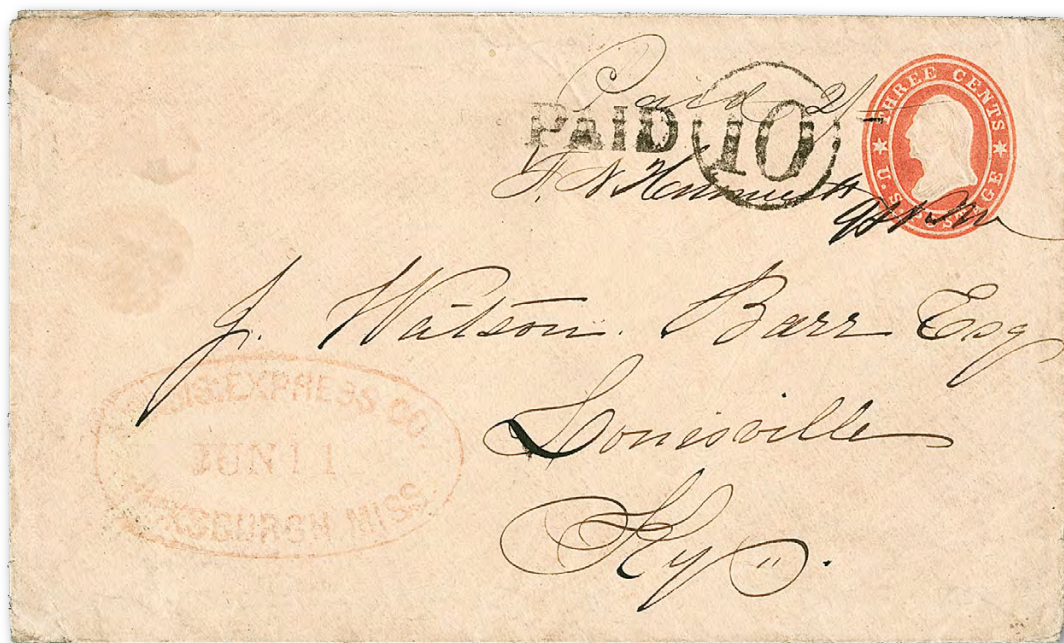 Paid 2/-
PAID 10
THREE CENTS
U.S. POSTAGE
J. Watson. Barr Esq
Louisville
Ky.
EXPRESS CO.
JUN 11
VICKSBURGH MISS.